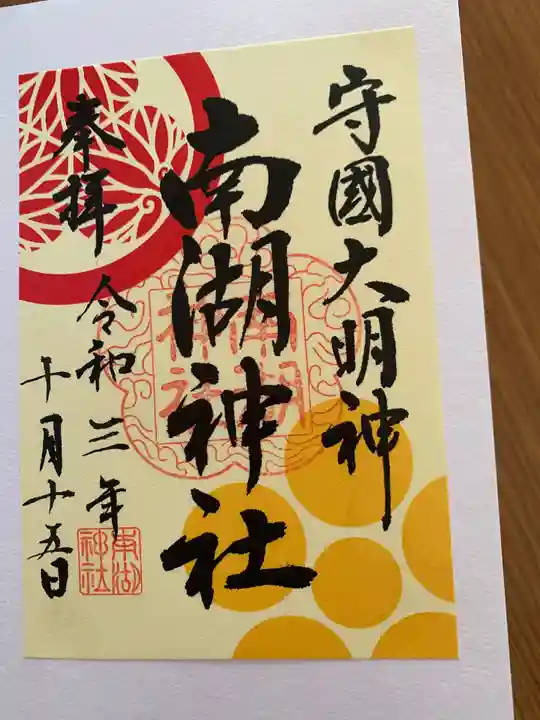 守國大明神
南湖神社
奉拝 令和三年
十月十五日
南湖
神社
南湖
神社